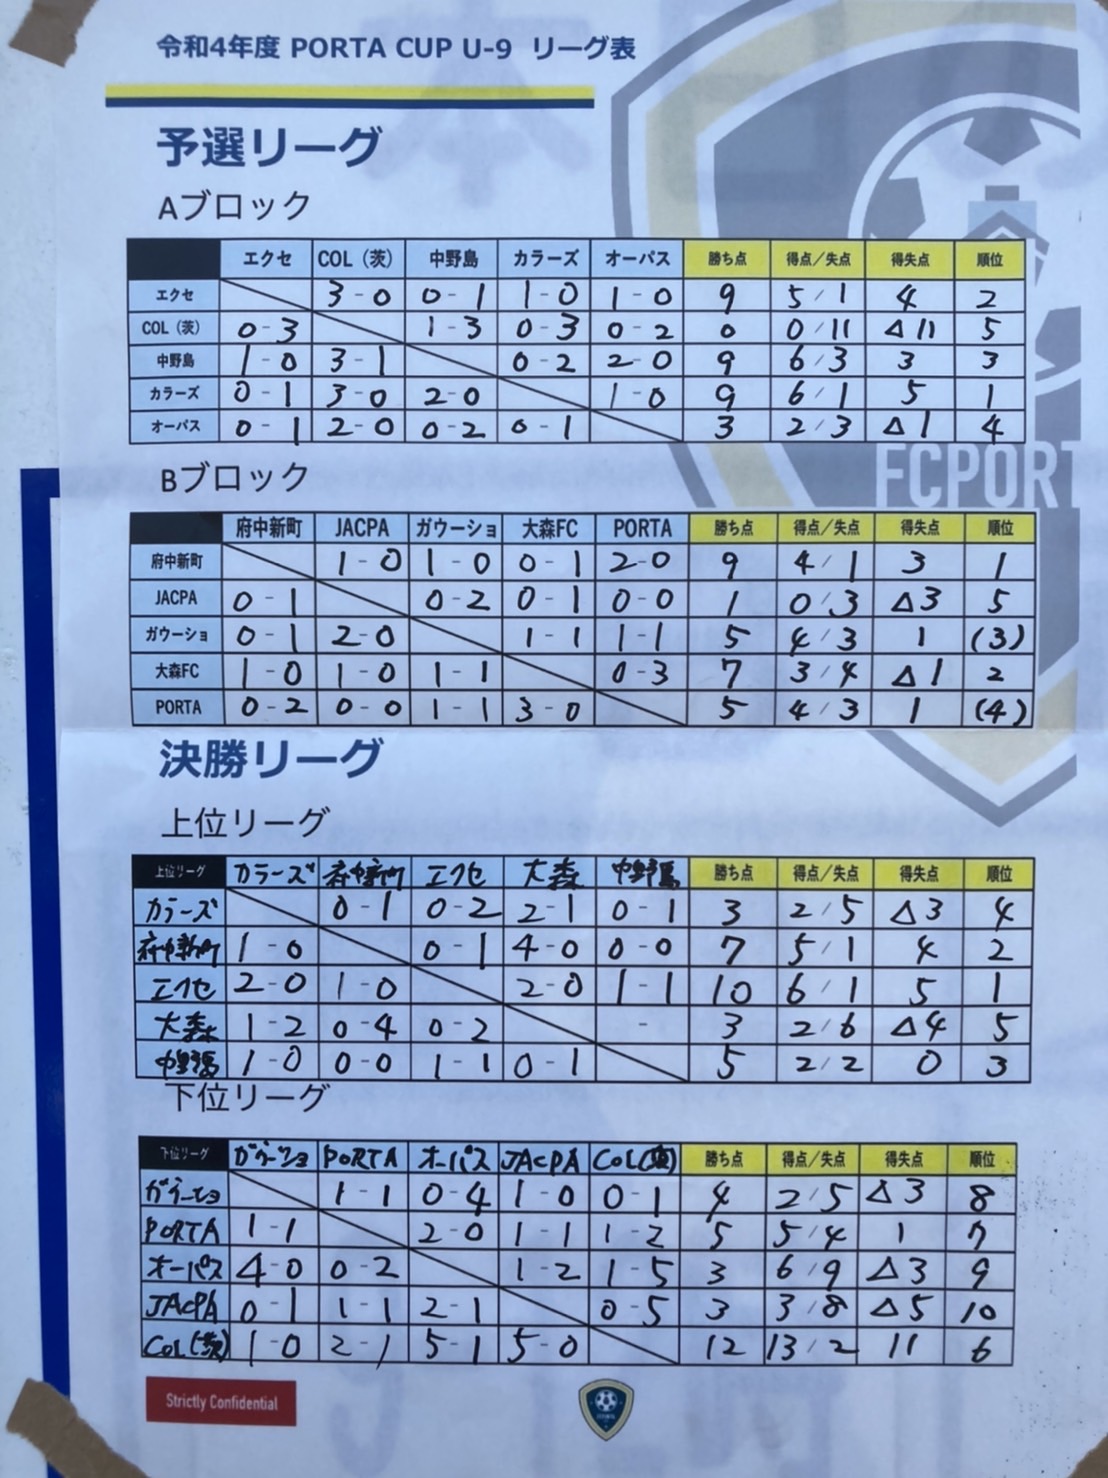 令和4年度 PORTA CUP U-9 リーグ表
予選リーグ
Aブロック
エクセ COL（茨） 中野島 カラーズ オーパス 勝ち点 得点／失点 得失点 順位
エクセ 3-0 0-1 1-0 1-0 9 5/1 4 2
COL（茨） 0-3 1-3 0-3 0-2 0 0/11 △11 5
中野島 1-0 3-1 0-2 2-0 9 6/3 3 3
カラーズ 0-1 3-0 2-0 1-0 9 6/1 5 1
オーパス 0-1 2-0 0-2 0-1 3 2/3 △1 4
FCPORT
Bブロック
府中新町 JACPA ガウーショ 大森FC PORTA 勝ち点 得点／失点 得失点 順位
府中新町 1-0 1-0 0-1 2-0 9 4/1 3 1
JACPA 0-1 0-2 0-1 0-0 1 0/3 △3 5
ガウーショ 0-1 2-0 1-1 1-1 5 4/3 1 (3)
大森FC 1-0 1-0 1-1 0-3 7 3/4 △1 2
PORTA 0-2 0-0 1-1 3-0 5 4/3 1 (4)
決勝リーグ
上位リーグ
上位リーグ カラーズ 府中新町 エクセ 大森 中野島 勝ち点 得点／失点 得失点 順位
カラーズ 0-1 0-2 2-1 0-1 3 2/5 △3 4
府中新町 1-0 0-1 4-0 0-0 7 5/1 4 2
エクセ 2-0 1-0 2-0 1-1 10 6/1 5 1
大森 1-2 0-4 0-2 - 3 2/6 △4 5
中野島 1-0 0-0 1-1 0-1 5 2/2 0 3
下位リーグ
下位リーグ ガウーショ PORTA オーパス JACPA COL(茨) 勝ち点 得点／失点 得失点 順位
ガウーショ 1-1 0-4 1-0 0-1 4 2/5 △3 8
PORTA 1-1 2-0 1-1 1-2 5 5/4 1 7
オーパス 4-0 0-2 1-2 1-5 3 6/9 △3 9
JACPA 0-1 1-1 2-1 0-5 3 3/8 △5 10
COL(茨) 1-0 2-1 5-1 5-0 12 13/2 11 6
Strictly Confidential